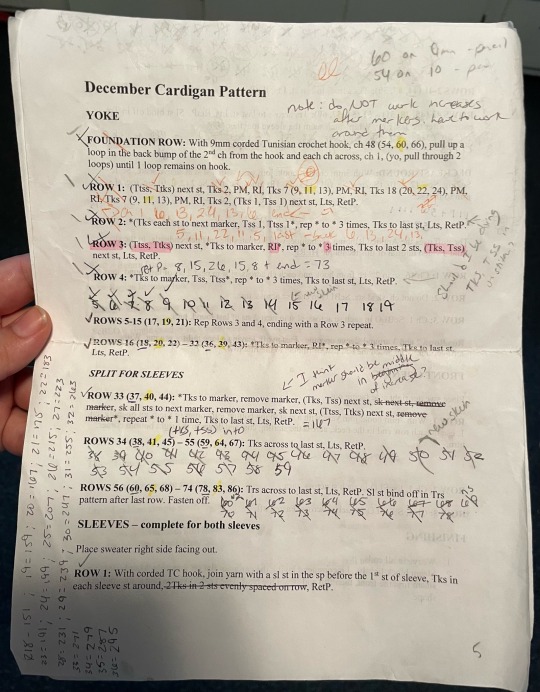 60 on 9mm - pencil
54 on 10 - pen
December Cardigan Pattern
note: do NOT work increases
after markers. have to work
around them
YOKE
FOUNDATION ROW: With 9mm corded Tunisian crochet hook, ch 48 (54, 60, 66), pull up a
loop in the back bump of the 2nd ch from the hook and each ch across, ch 1, (yo, pull through 2
loops) until 1 loop remains on hook.
ROW 1: (Ttss, Ttks) next st, Tks 2, PM, RI, Tks 7 (9, 11, 13), PM, RI, Tks 18 (20, 22, 24), PM,
RI, Tks 7 (9, 11, 13), PM, RI, Tks 2, (Tks 1, Tss 1) next st, Lts, RetP.
ROW 2: *(Tks each st to next marker, Tss 1, Ttss 1*, rep * to * 3 times, Tks to last st, Lts, RetP.
ROW 3: (Ttss, Ttks) next st, *Tks to marker, RI*, rep * to * 3 times, Tks to last 2 sts, (Tks, Tss)
next st, Lts, RetP.
RetP = 8, 15, 26, 15, 8 + end = 73
ROW 4: *Tks to marker, Tss, Ttss*, rep * to * 3 times, Tks to last st, Lts, RetP.
5 6 7 8 9 10 11 12 13 14 15 16 17 18 19
ROWS 5-15 (17, 19, 21): Rep Rows 3 and 4, ending with a Row 3 repeat.
ROWS 16 (18, 20, 22) – 32 (36, 39, 43): *Tks to marker, RI*, rep * to * 3 times, Tks to last st,
Lts, RetP.
SPLIT FOR SLEEVES
I think
marker should be middle
of increase
ROW 33 (37, 40, 44): *Tks to marker, remove marker, (Tks, Tss) next st, sk next st, remove
marker, sk all sts to next marker, remove marker, sk next st, (Ttss, Ttks) next st, remove
marker*, repeat * to * 1 time, Tks to last st, Lts, RetP. = 167
(tks, tss) into
new skein
ROWS 34 (38, 41, 45) – 55 (59, 64, 67): Tks across to last st, Lts, RetP.
38 39 40 41 42 43 44 45 46 47 48 49 50 51 52
53 54 55 56 57 58 59
ROWS 56 (60, 65, 68) – 74 (78, 83, 86): Trs across to last st, Lts, RetP. Sl st bind off in Trs
pattern after last row. Fasten off.
60 61 62 63 64 65 66 67 68 69
70 71 72 73 74 75 76 77 78
SLEEVES – complete for both sleeves
Place sweater right side facing out.
ROW 1: With corded TC hook, join yarn with a sl st in the sp before the 1st st of sleeve, Tks in
each sleeve st around, 2Tks in 2 sts evenly spaced on row, RetP.
R18 - 151; 19 = 159; 20 = 167; 21 = 175; 22 = 183
23 = 191; 24 = 199; 25 = 207; 26 = 215; 27 = 223
28 = 231; 29 = 239; 30 = 247; 31 = 255; 32 = 263
33 = 271
34 = 279
35 = 287
36 = 295
5